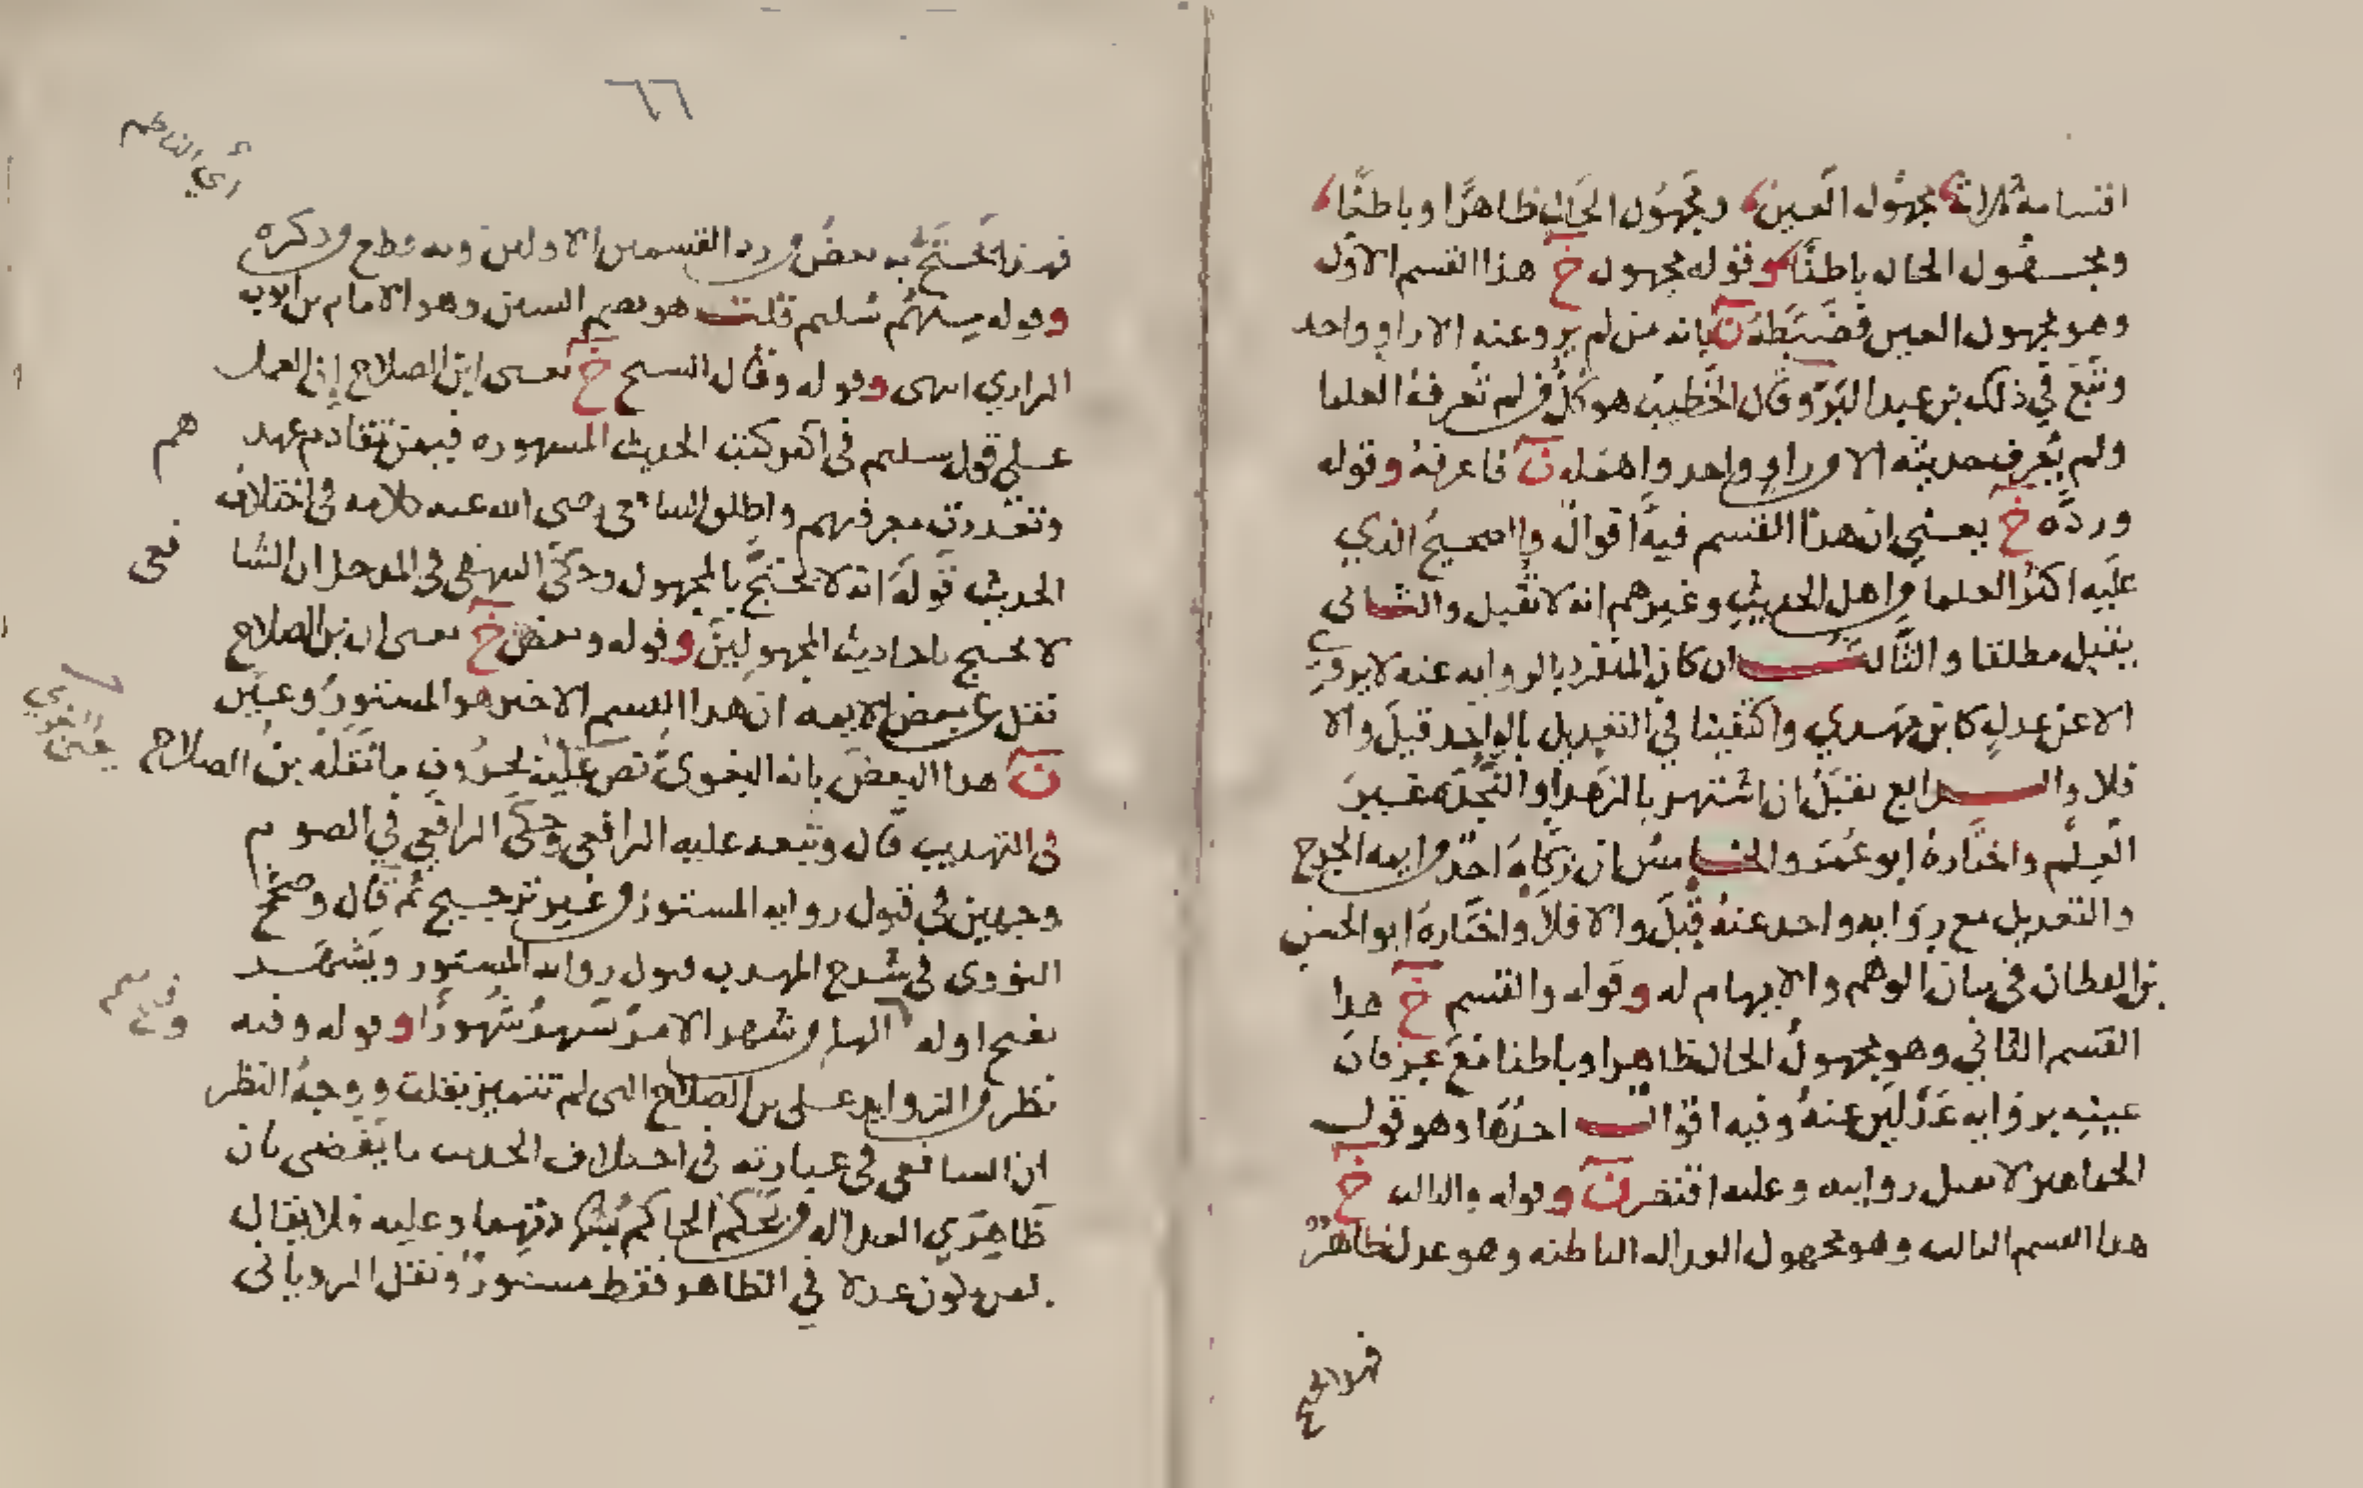 اقسامه ثلاثة مجهول العين ومجهول الحال ظاهرا وباطنا
ومجهول الحال باطنا وقوله مجهول خ هذا القسم الاول
وهو مجهول العين فضبطه ن بانه من لم يرو عنه الا راو واحد
وتبع في ذلك بن عبد البر وقال الخطيب هو كل من لم تعرفه العلما
ولم يعرف حديثه الا من راو واحد واهمله ن فاعرفه وقوله
ورده خ يعني ان هذا القسم فيه اقوال والصحيح الذي
عليه اكثر العلما من اهل الحديث وغيرهم انه لا تقبل والثاني
يقبل مطلقا والثالث ان كان المنفرد بالروايه عنه لا يروي
الا عن عدل كابن مهدي واكتفينا في التعديل بالواحد قبل والا
فلا والرابع يقبل ان اشتهر بالزهد او النجدة غير
العلم واختاره ابو عمر والخامس ان زكاه احد من ايمه الجرح
والتعديل مع روايه واحد عنه قبل والا فلا واختاره ابو الحسن
بن القطان في بيان الوهم والايهام له وقوله والقسم خ هذا
القسم الثاني وهو مجهول الحال ظاهرا وباطنا مع عرفان
عينه بروايه عدلين عنه وفيه اقوال احدها وهو قول
الجماهير لا تقبل روايته وعليه اقتصر ن وقوله والثالث خ
هذا القسم الثالث وهو مجهول العداله الباطنه وهو عدل ظاهر
٦٦
فهذا يحتج به بعض من رد القسمين الاولين وبه قطع وذكره
وقوله منهم سليم قلت هو بضم السين وهو الامام بن ايوب
الرازي انتهى وقوله وقال الشيخ خ يعني ابن الصلاح ان العمل
على قول سليم في اكثر كتب الحديث المشهوره فيمن تقادم عهد هم
وتعذرت معرفتهم واطلق الشافعي رضي الله عنه كلامه في اختلاف
الحديث قوله انه لا يحتج بالمجهول وحكى البيهقي في المدخل ان الشا فعي
لا يحتج باحاديث المجهولين وقوله وبعض خ يعني ان بن الصلاح
نقل عن بعض الايمه ان هذا القسم الاخير هو المستور وعين
ن هذا البعض بانه البغوي نص عليه بحروف ما نقله بن الصلاح
في التهذيب قال وتبعه عليه الرافعي وحكى الرافعي في الصوم
وجهين في قبول روايه المستور من غير ترجيح ثم قال وصحح
النووي في شرح المهذب قبول روايه المستور ويشهد
بفتح اوله الها من شهد الامر يشهد شهودا وقوله وفيه
نظر من الزوايد على بن الصلاح التي لم تتميز بقلت ووجه النظر
ان الشافعي في عبارته في اختلاف الحديث ما يقضي بان
ظاهري العداله من يحكم الحاكم بشهادتهما وعليه فلا يقال
لمن يكون عدلا في الظاهر فقط مستور ونقل الروياني